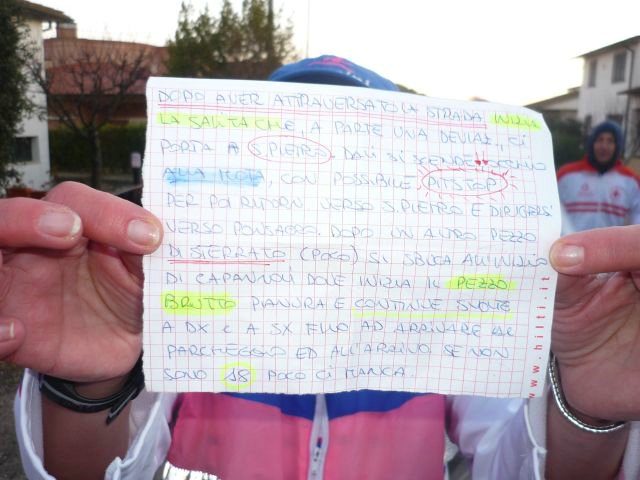 DOPO AVER ATTRAVERSATO LA STRADA INIZIA
LA SALITA CHE, A PARTE UNA DEVIAZ., CI
PORTA A S.PIETRO. DA LÌ SI SCENDE
ALLA, CON POSSIBILE PITSTOP
PER POI RITORN. VERSO S.PIETRO E DIRIGERSI
VERSO PONSACCO. DOPO UN ALTRO PEZZO
DI STERRATO (POCO) SI SBUCA ALL'INIZIO
DI CAPANNONI DOVE INIZIA IL PEZZO
BRUTTO PIANURA E CONTINUE SVOLTE
A DX E A SX FINO AD ARRIVARE AL
PARCHEGGIO ED ALL'ARRIVO. SE NON
SONO 18 POCO CI MANCA.
www.hilti.it